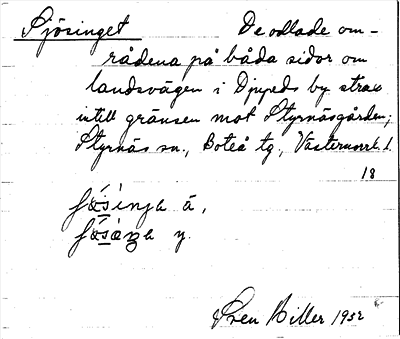 Sjösinget De odlade om-
rådena på båda sidor om
landsvägen i Djupeds by strax
intill gränsen mot Styrnäsgården;
Styrnäs sn., Boteå tg, Västernorrl. l.
18
ä,
y.
Sven Hiller 1952